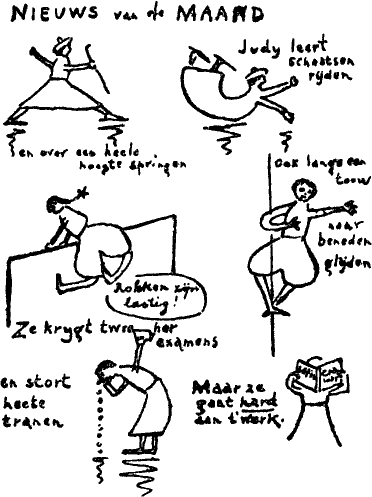 NIEUWS van de MAAND
Judy leert
schaatsen
rijden
en over een heele
hoogte springen
ook langs een
touw
naar
beneden
glijden
Rokken zijn
lastig!
Ze krygt twee her
examens
en stort
heete
tranen
Maar ze
gaat hard
aan 't werk.